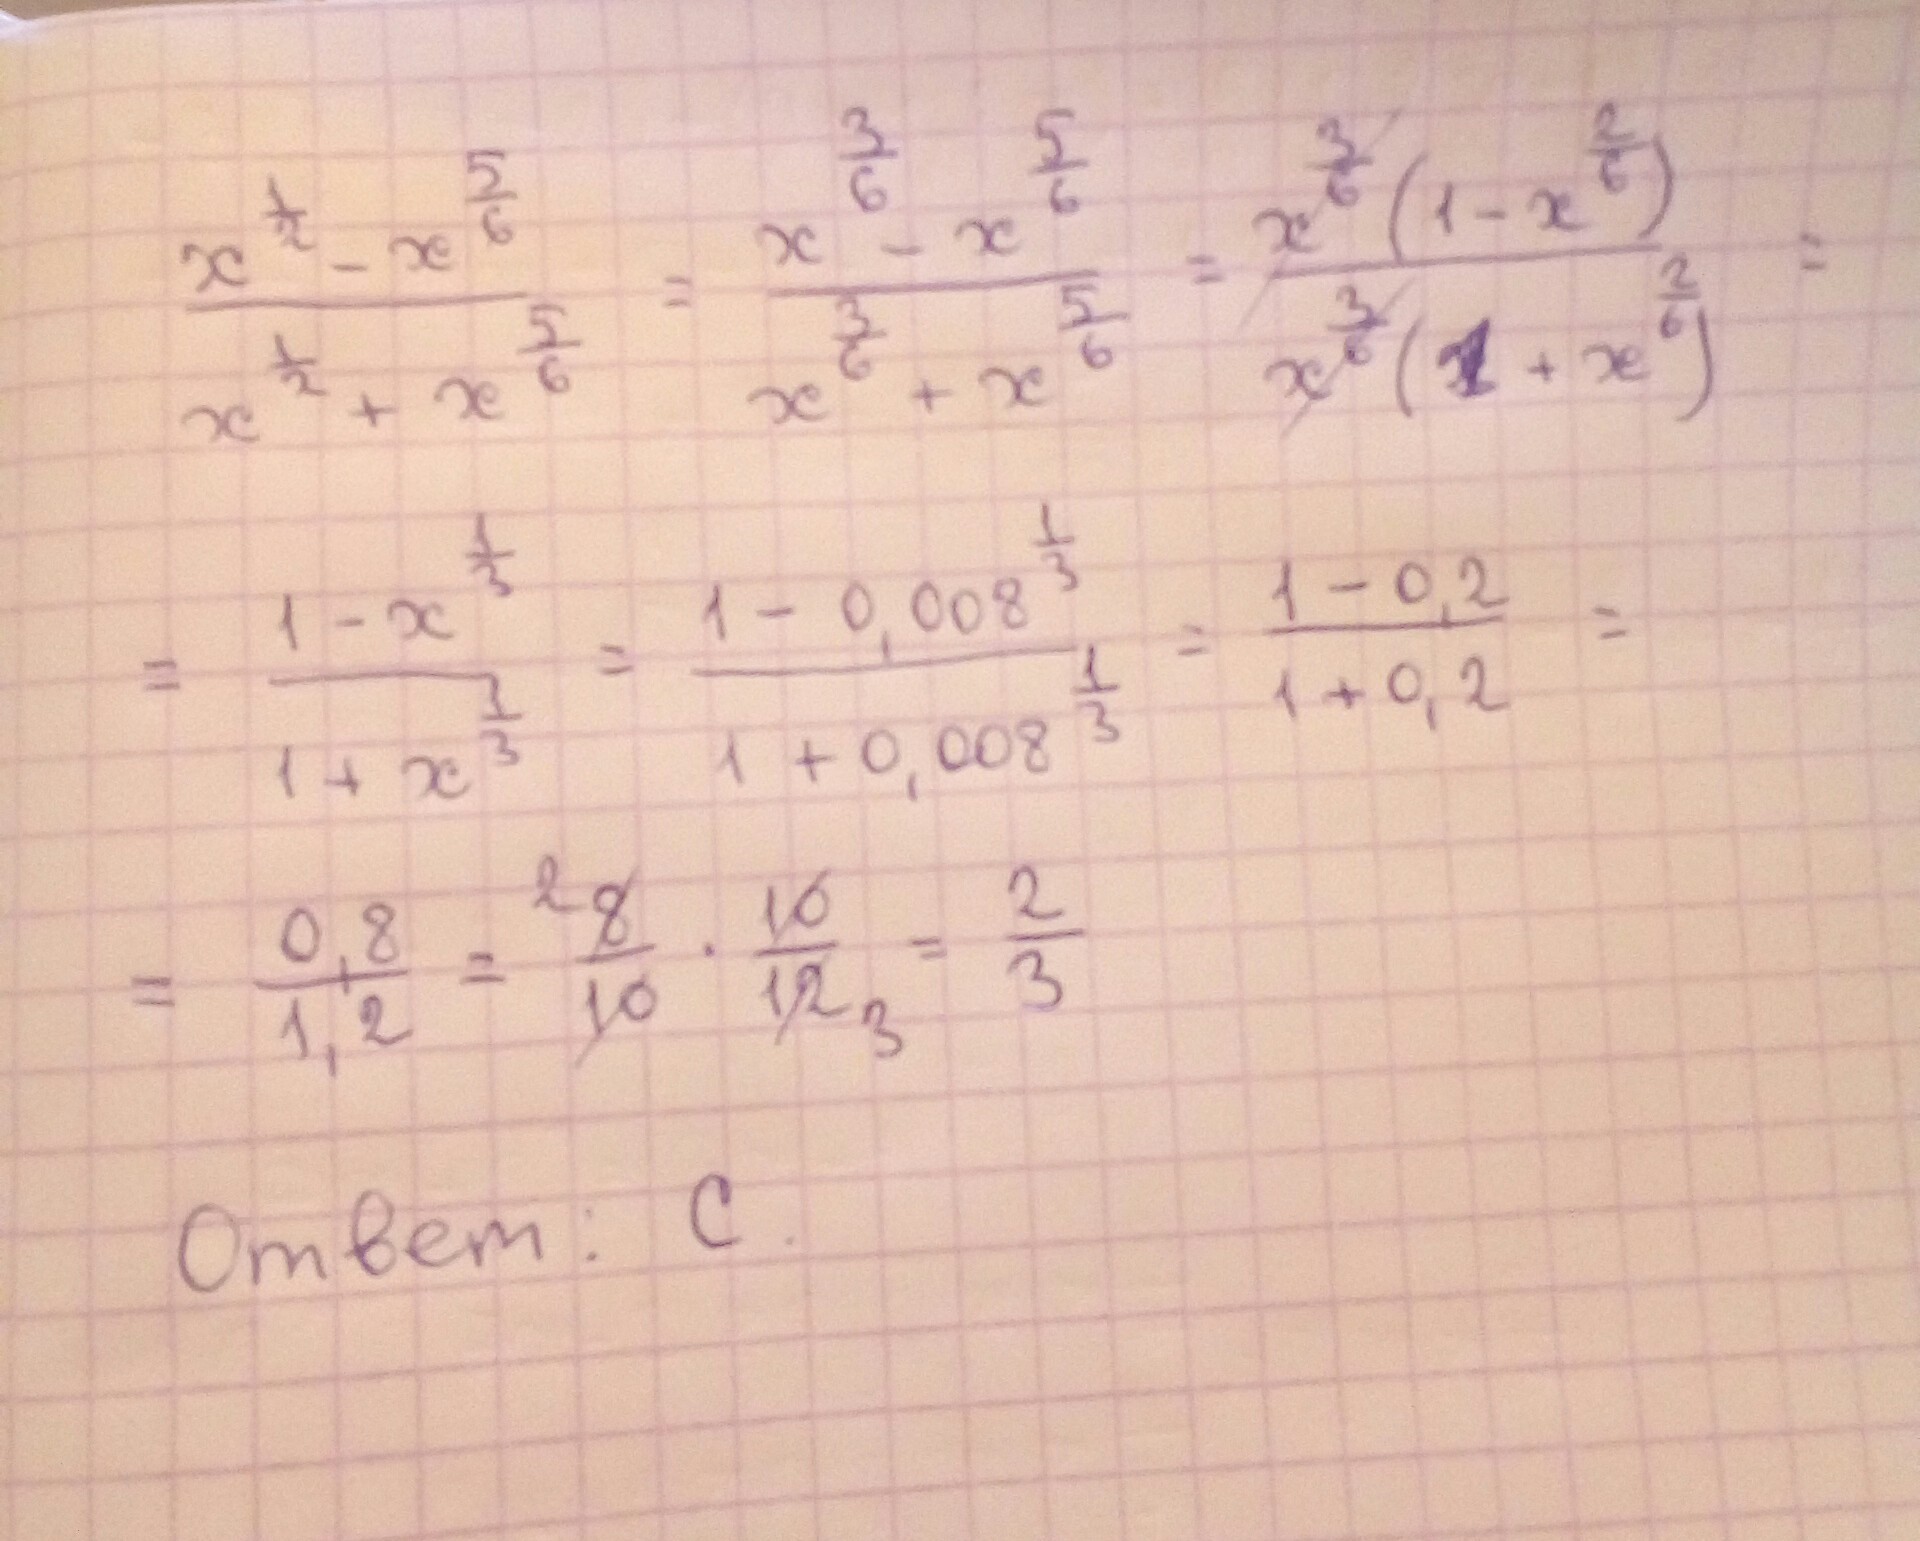 x^{1/2} - x^{5/6} / x^{1/2} + x^{5/6} = x^{3/6} - x^{5/6} / x^{3/6} + x^{5/6} = x^{3/6}(1 - x^{2/6}) / x^{3/6}(1 + x^{2/6}) =
= 1 - x^{1/3} / 1 + x^{1/3} = 1 - 0,008^{1/3} / 1 + 0,008^{1/3} = 1 - 0,2 / 1 + 0,2 =
= 0,8 / 1,2 = 2 8/10 · 10/12 3 = 2/3
Ответ: С.